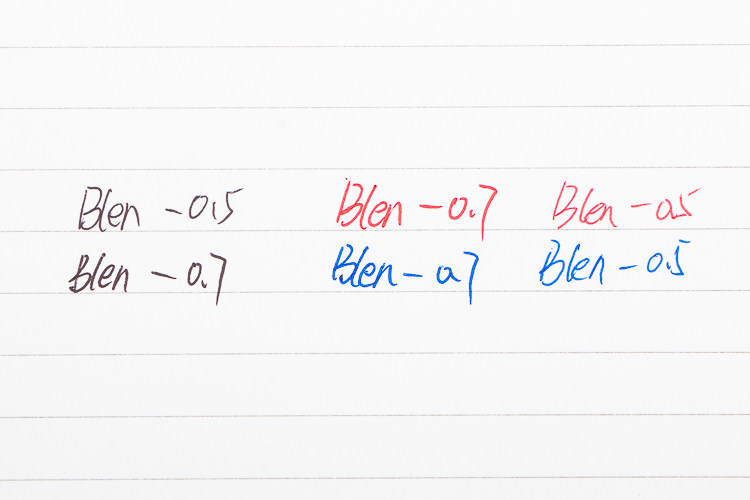 Blen - 0.5 Blen - 0.7 Blen - 0.5
Blen - 0.7 Blen - 0.7 Blen - 0.5